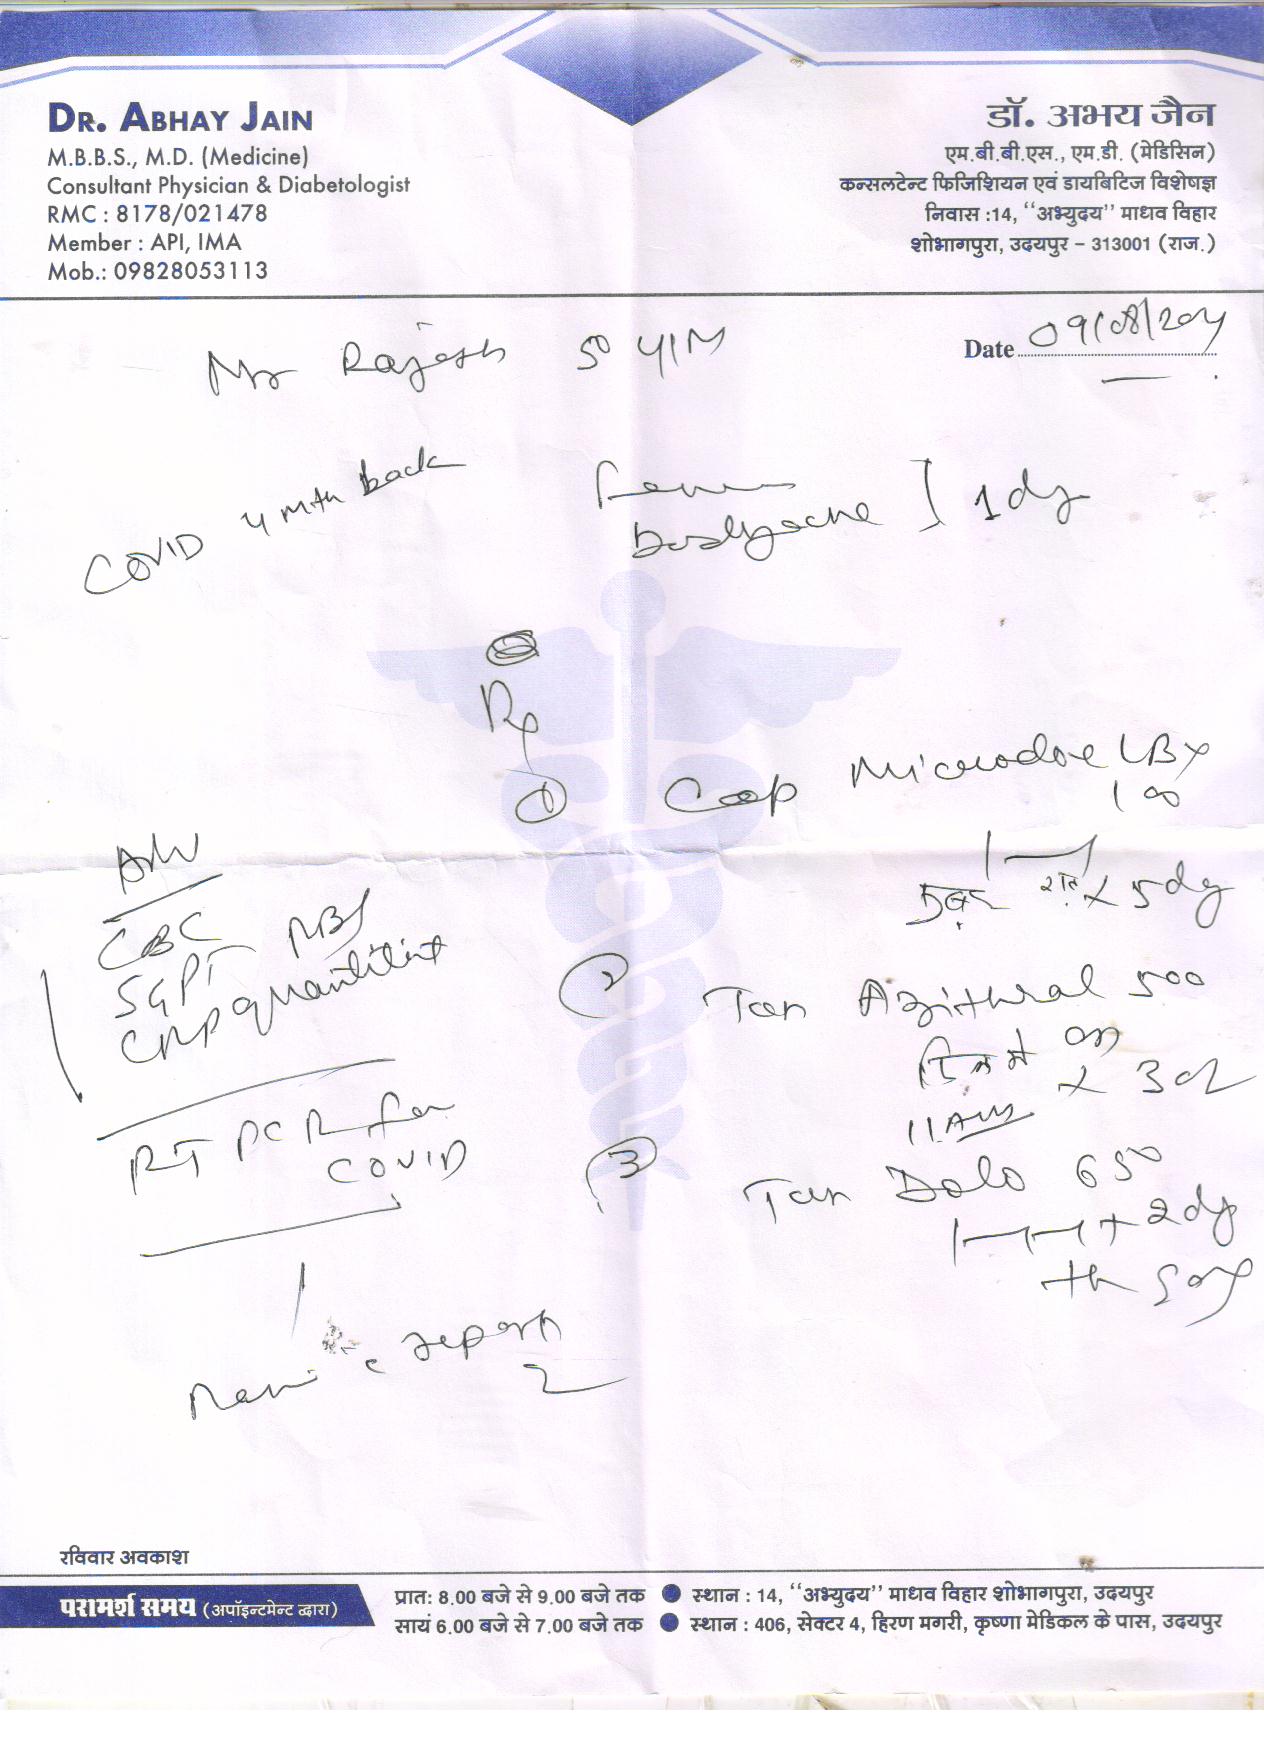 DR. ABHAY JAIN
M.B.B.S., M.D. (Medicine)
Consultant Physician & Diabetologist
RMC : 8178/021478
Member : API, IMA
Mob.: 09828053113
डॉ. अभय जैन
एम.बी.बी.एस., एम.डी. (मेडिसिन)
कन्सलटेन्ट फिजिशियन एवं डायबिटिज विशेषज्ञ
निवास :14, ‘‘अभ्युदय’’ माधव विहार
शोभागपुरा, उदयपुर – 313001 (राज.)
Date 09/08/
Mr Rajesh 50 Y/M
COVID 4 mth back
Fever
Bodyache ] 1 day
Rx
① Cap Microdox LBX
100
रात x 5 day
CBC MBS
SGPT
CRP quantitative
RT PCR for
COVID
2 Tab Azithral 500
दिन में
x 3 d
11 AM
3 Tab Dolo 650
2 day
th SOS
c report
रविवार अवकाश
परामर्श समय (अपॉइन्टमेन्ट द्वारा)
प्रात: 8.00 बजे से 9.00 बजे तक ● स्थान : 14, ‘‘अभ्युदय’’ माधव विहार शोभागपुरा, उदयपुर
सायं 6.00 बजे से 7.00 बजे तक ● स्थान : 406, सेक्टर 4, हिरण मगरी, कृष्णा मेडिकल के पास, उदयपुर